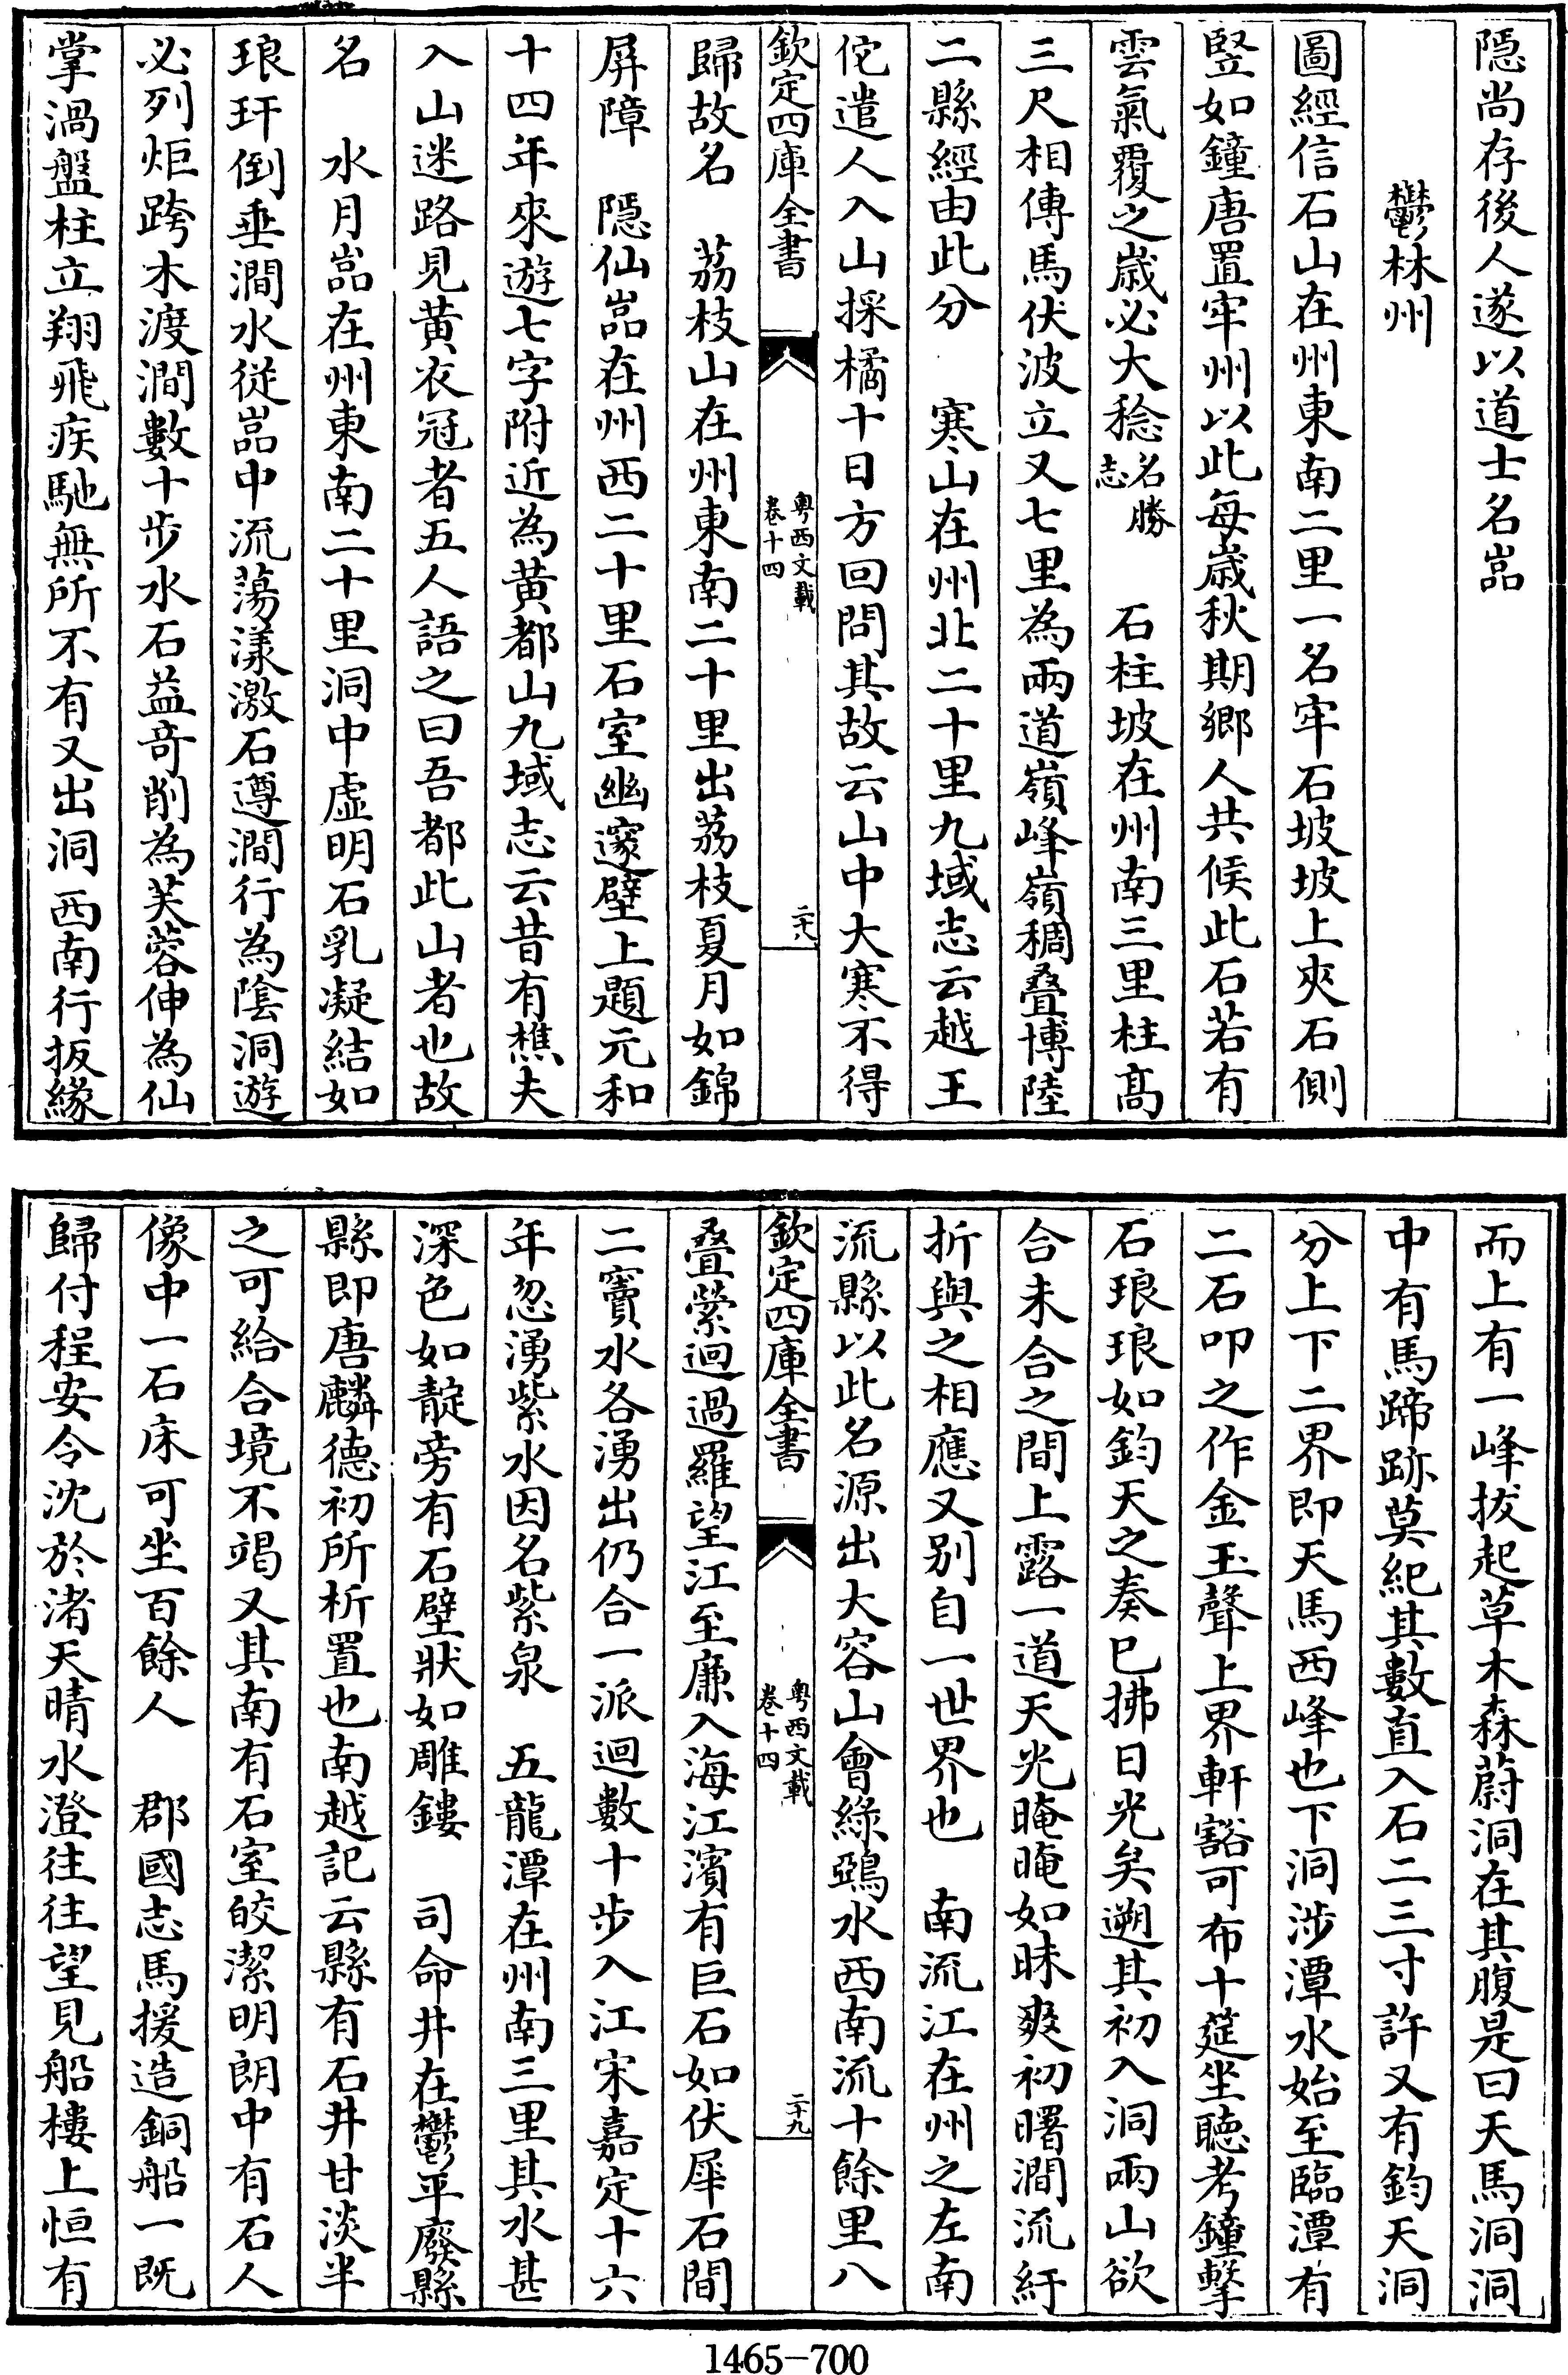 隠尚存後人遂以道士名嵓
鬱林州
圖經信石山在州東南二里一名牢石坡坡上夾石側
竪如鐘唐置牢州以此每歳秋期鄉人共候此石若有
雲氣覆之歳必大稔名勝志 石柱坡在州南三里柱髙
三尺相傳馬伏波立又七里為兩道嶺峰嶺稠叠博陸
二縣經由此分 寒山在州北二十里九域志云越王
佗遣人入山採橘十日方回問其故云山中大寒不得
欽定四庫全書 粤西文載 卷十四 二十八
歸故名 荔枝山在州東南二十里出荔枝夏月如錦
屏障 隠仙嵓在州西二十里石室幽邃壁上題元和
十四年來遊七字附近為黄都山九域志云昔有樵夫
入山迷路見黄衣冠者五人語之曰吾都此山者也故
名 水月嵓在州東南二十里洞中虚明石乳凝結如
琅玕倒垂澗水從嵓中流蕩漾激石遵澗行為陰洞遊
必列炬跨木渡澗數十步水石益竒削為芙蓉伸為仙
掌渦盤柱立翔飛疾馳無所不有又出洞西南行扳緣
而上有一峰拔起草木森蔚洞在其腹是曰天馬洞洞
中有馬蹄跡莫紀其數直入石二三寸許又有鈞天洞
分上下二界即天馬西峰也下洞涉潭水始至臨潭有
二石叩之作金玉聲上界軒豁可布十筵坐聽考鐘擊
石琅琅如鈞天之奏已拂日光矣遡其初入洞兩山欲
合未合之間上露一道天光晻晻如昧爽初曙澗流紆
折與之相應又别自一世界也 南流江在州之左南
流縣以此名源出大容山會綠鵶水西南流十餘里八
欽定四庫全書 粤西文載 卷十四 二十九
叠縈迴過羅望江至亷入海江濱有巨石如伏犀石間
二竇水各湧出仍合一派迴數十步入江宋嘉定十六
年忽湧紫水因名紫泉 五龍潭在州南三里其水甚
深色如靛旁有石壁狀如雕鏤 司命井在鬱平廢縣
縣即唐麟德初所析置也南越記云縣有石井甘淡半
之可給合境不竭又其南有石室皎潔明朗中有石人
像中一石床可坐百餘人 郡國志馬援造銅船一既
歸付程安令沈於渚天晴水澄往往望見船樓上恒有
1465-700